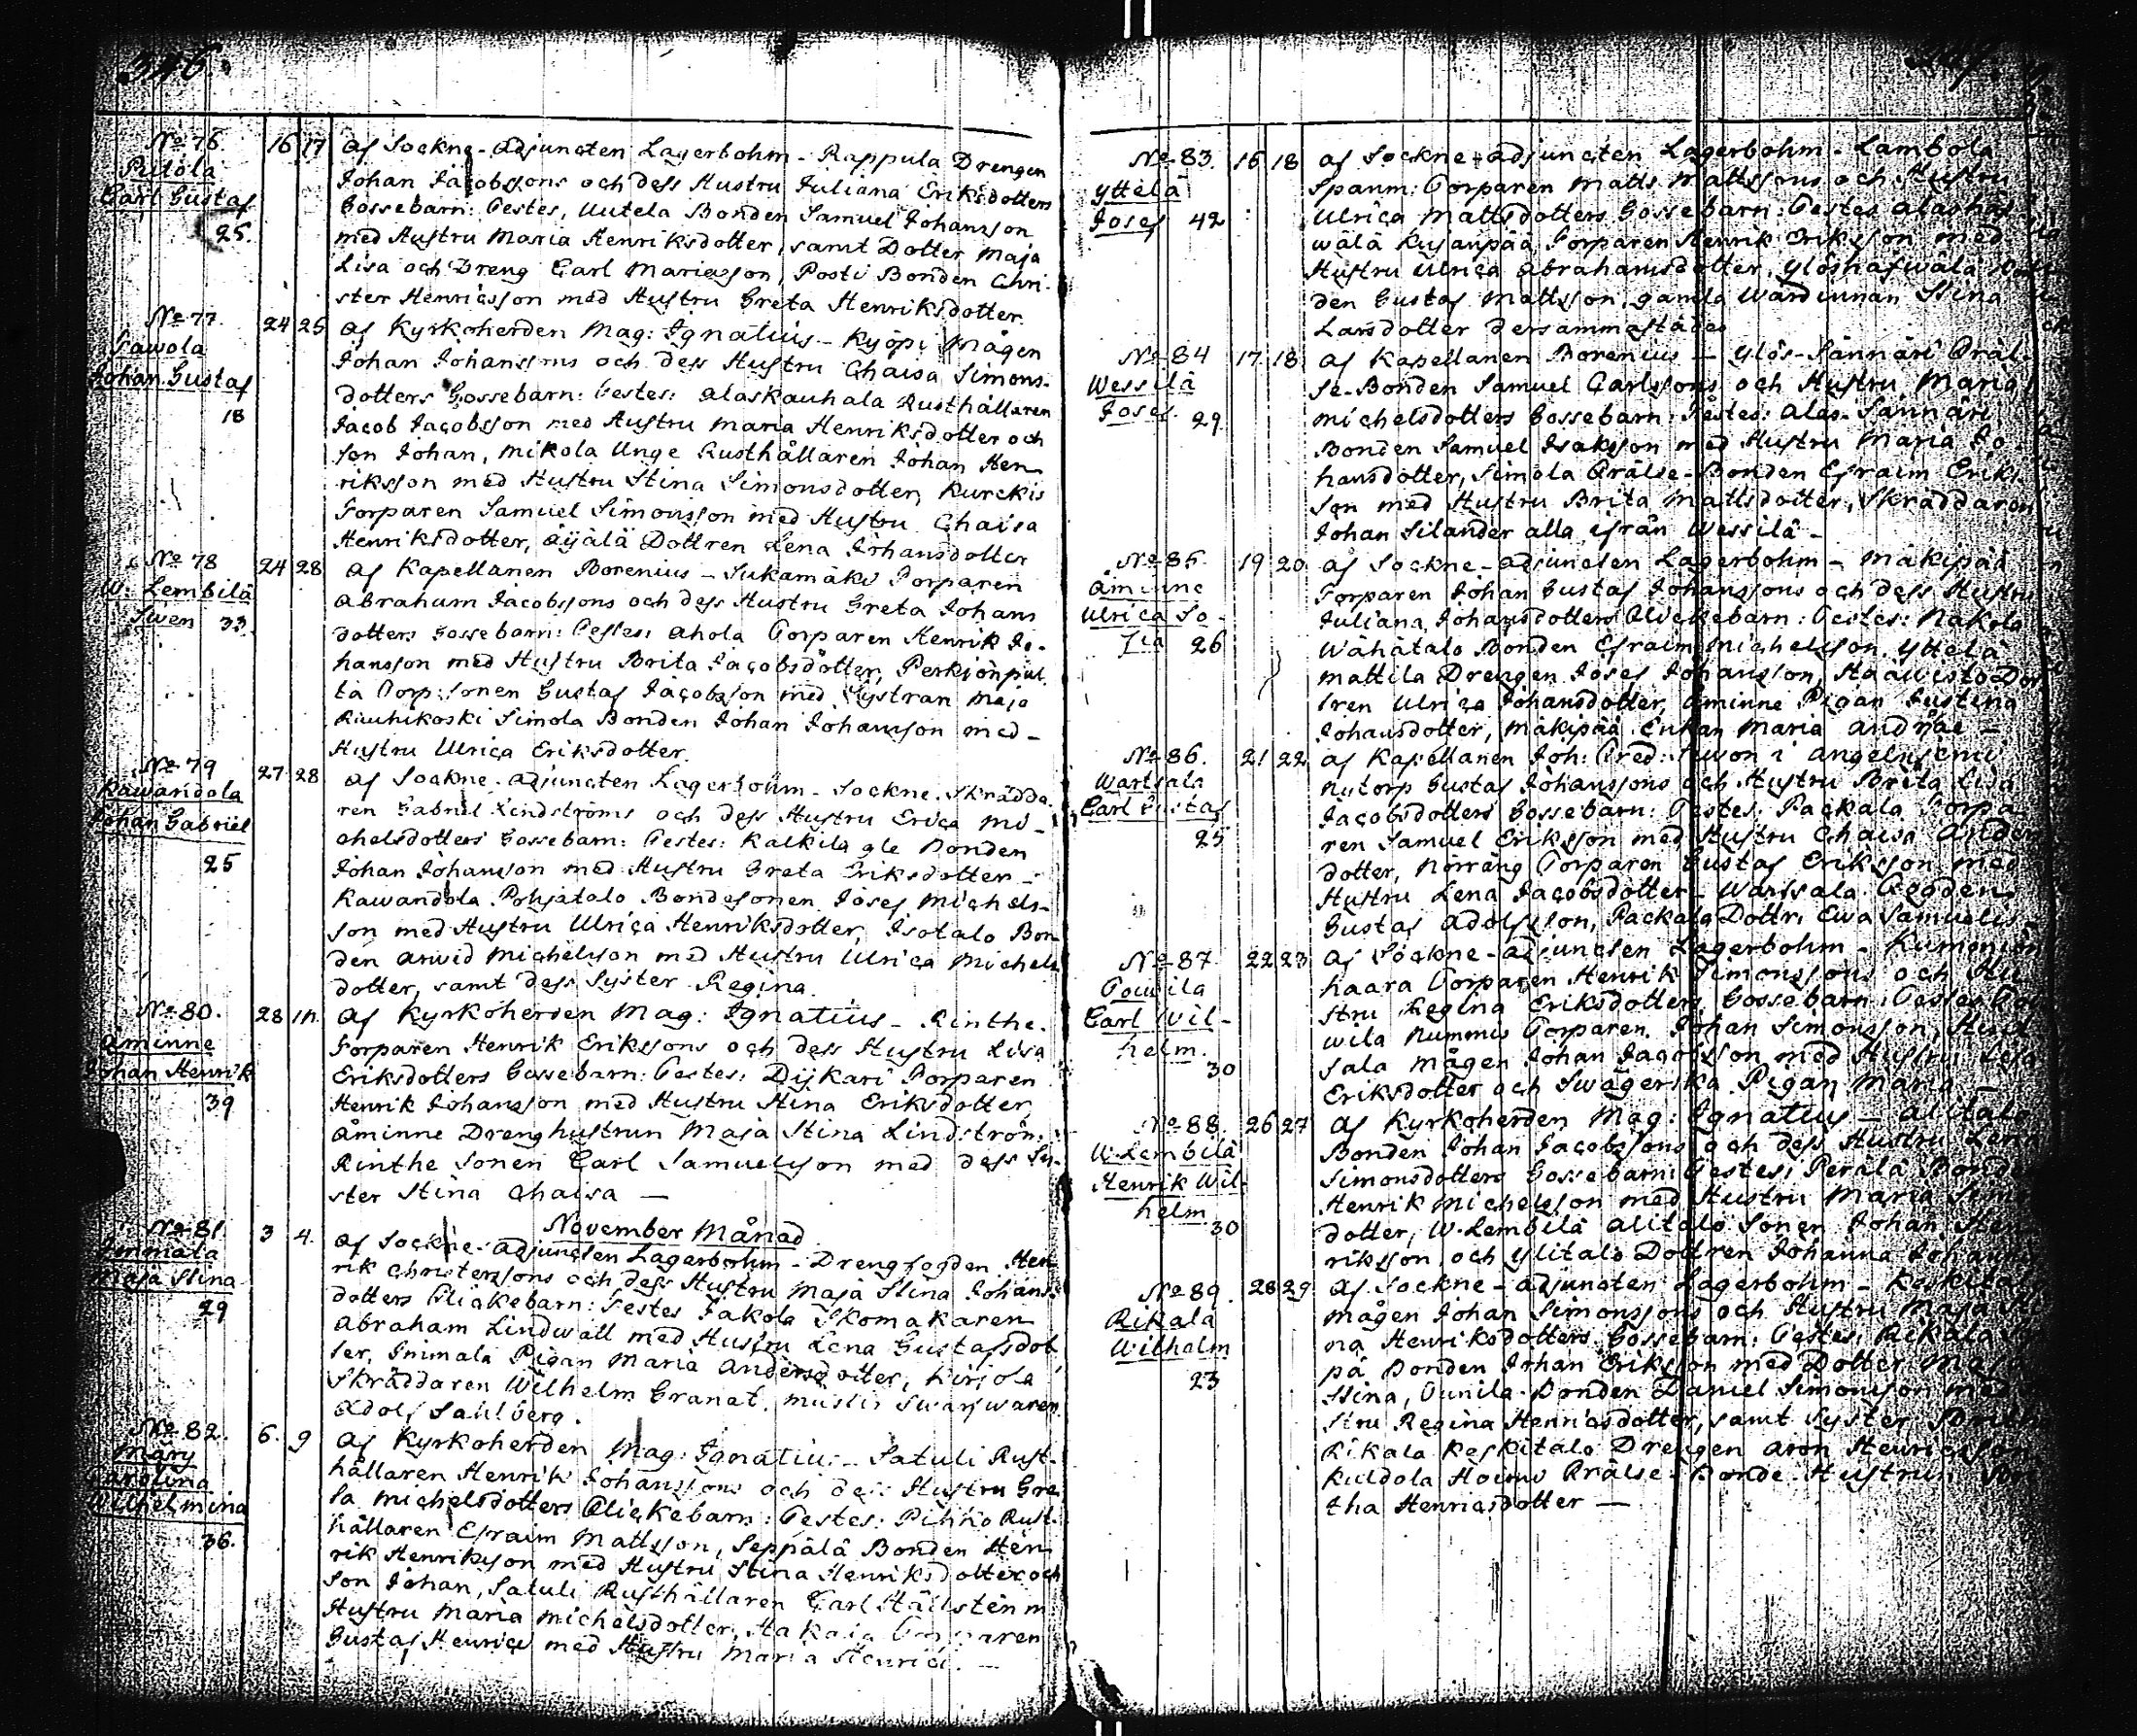 346.
No 76. 16 17 af Sockne-adjuncten Lagerbohm - Rappula Drengen
Putola Johan Jacobssons och dess Hustru Juliana Eriksdotters
Carl Gustaf Gossebarn: Testes, Uutela Bonden Samuel Johansson
25. med Hustru Maria Henriksdotter, samt Dotter Maja
Lisa och Dreng Carl Mariæson, Posti Bonden Chri-
ster Henricsson med Hustru Greta Henriksdotter.
No 77. 24 25 af Kyrkoherden Mag: Ignatius - Kyöpi Mågen
Sawola Johan Johanssons och dess Hustru Chaisa Simons-
Johan Gustaf dotters Gossebarn: Testes: Alaskauhala Rusthållaren
18 Jacob Jacobsson med Hustru Maria Henriksdotter och
Son Johan, Mikola Unge Rusthållaren Johan Hen
riksson med Hustru Stina Simonsdotter, Kurckis
Torparen Samuel Simonsson med Hustru Chaisa
Henriksdotter, Äijälä Dottren Lena Johansdotter
No 78 24 28 af Kapellanen Borenius - Sukamäki Torparen
W: Lembilä Abraham Jacobssons och dess Hustru Greta Johans
Swen 33. dotters Gossebarn: Testes: Ahola Torparen Henrik Jo-
hansson med Hustru Brita Jacobsdotter, Perkiönpul
ta Torp: Sonen Gustaf Jacobsson med Systran Maja
Riuhikoski Simola Bonden Johan Johansson med -
Hustru Ulrica Eriksdotter.
No 79 27 28 af Sockne-adjuncten Lagerbohm - Sockne Skrädda
Kawandola ren Gabriel Lindströms och dess Hustru Erica Mi-
Johan Gabriel chelsdotters Gossebarn: Testes: Kalkila gle Bonden
25 Johan Johansson med Hustru Greta Eriksdotter -
Kawandola Pohjatalo Bondesonen Josef Michels-
son med Hustru Ulrica Henriksdotter, Isotalo Bon
den Arwid Michelsson med Hustru Ulrica Michels
dotter, samt dess Syster Regina.
No 80. 28 1 n. af Kyrkoherden Mag: Ignatius - Rinthe.
Åminne Torparen Henrik Erikssons och dess Hustru Lisa
Johan Henrik Eriksdotters Gossebarn: Testes: Dijkari Torparen
39 Henrik Johansson med Hustru Stina Eriksdotter,
Åminne Drenghustrun Maja Stina Lindström,
Rinthe Sonen Carl Samuelsson med dess Sy-
ster Stina Chaisa -
November Månad
No 81. 3 4. af Sockne-adjuncten Lagerbohm - Drengfogden Hen
Immala rik Christerssons och dess Hustru Maja Stina Johans
Maja Stina dotters Flickebarn: Testes Jakola Skomakaren
29 Abraham Lindwall med Hustru Lena Gustafsdot
ter, Inimala Pigan Maria Andersdotter, Kirjola
Skräddaren Wilhelm Granat,
Adolf Sahlberg.
No 82. 6. 9 af Kyrkoherden Mag: Ignatius - Satuli Rust-
Märy hållaren Henrik Johanssons och dess Hustru Gre
Carolina ta Michelsdotters Flickebarn: Testes: Pihko Rust-
Wilhelmina hållaren Efraim Mattsson, Seppälä Bonden Hen
36. rik Henriksson med Hustru Stina Henriksdotter och
Son Johan, Satuli Rusthållaren Carl Hällsten m
Hustru Maria Michelsdotter,
Gustaf Henrici med Hustru Maria Henrici. -
No 83. 16 18 af Sockne-adjuncten Lagerbohm - Lambola
Yttelä Spanm: Torparen Matts Mattssons och Hustru
Josef 42 Ulrica Mattsdotters Gossebarn: Testes
wälä Kujanpää Torparen Henrik Eriksson med
Hustru Ulrica Abrahamsdotter,
den Gustaf Mattsson, gamla Wärdinnan Stina
Larsdotter dersammastädes
No 84 17 18 af Kapellanen Borenius - Ylös-Sännäri Fräl-
Wessilä se-Bonden Samuel Carlssons och Hustru Maria
Josef. 29 Michelsdotters Gossebarn: Testes: Alas-Sännäri
Bonden Samuel Isaksson med Hustru Maria Jo
hansdotter, Simola Frälse-Bonden Efraim Eriks-
son med Hustru Brita Mattsdotter, Skräddaren
Johan Silander alla ifrån Wessilä -
No 85. 19 20 af Sockne-adjuncten Lagerbohm - Mäkipää
Åminne Torparen Johan Gustaf Johanssons och dess Hustru
Ulrica So- Juliana Johansdotters Flickebarn: Testes: Nakola
fia 26 Wähätalo Bonden Efraim Michelsson, Yttelä
Mattila Drengen Josef Johansson, Haawisto Dot
tren Ulrica Johansdotter, Åminne Pigan Justina
Johansdotter, Mäkipää Enkan Maria Andræe -
No 86. 21 22 af Kapellanen Joh: Fred: i Angelniemi
Wartsala Nytorp Gustaf Johanssons och Hustru Brita Lisa
Carl Gustaf Jacobsdotters Gossebarn: Testes: Packala Torpa
25 ren Samuel Eriksson med Hustru Chaisa Anders
dotter, Norräng Torparen Gustaf Eriksson med
Hustru Lena Jacobsdotter - Wartsala Fogden
Gustaf Adolfsson, Packala Dottr: Ewa Samuelis -
No 87. 22 23 af Sockne-adjuncten Lagerbohm -
Towila haara Torparen Henrik Simonssons och Hu
Carl Wil- stru Regina Eriksdotters Gossebarn: Testes To
helm. wila Nummis Torparen Johan Simonsson,
30 sala Mågen Johan Jacobsson med Hustru
Eriksdotter och Swägerska Pigan Maria -
No 88. 26 27 af Kyrkoherden Mag: Ignatius - Alitalo
W. Lembilä Bonden Johan Jacobssons och dess Hustru Lena
Henrik Wil- Simonsdotters Gossebarn: Testes: Perälä Bonde
helm Henrik Michelsson med Hustru Maria Simo
30 dotter, W. Lembilä Alitalo Sonen Johan Hen
riksson, och Ylitalo Dottren Johanna
No 89. 28 29 af Sockne-adjuncten Lagerbohm - Keskital
Rikala Mågen Johan Simonssons och Hustru Maja Sti
Wilhelm na Henriksdotters Gossebarn: Testes: Rikala
23 pä Bonden Johan Eriksson med Dotter Maja
Stina, Bonden Daniel Simonsson med
stru Regina Henricsdotter, samt Syster
Rikala Keskitalo Drengen Aron Henricsson
Kuldola Frälse-Bonde Hustrun
tha Henricsdotter -